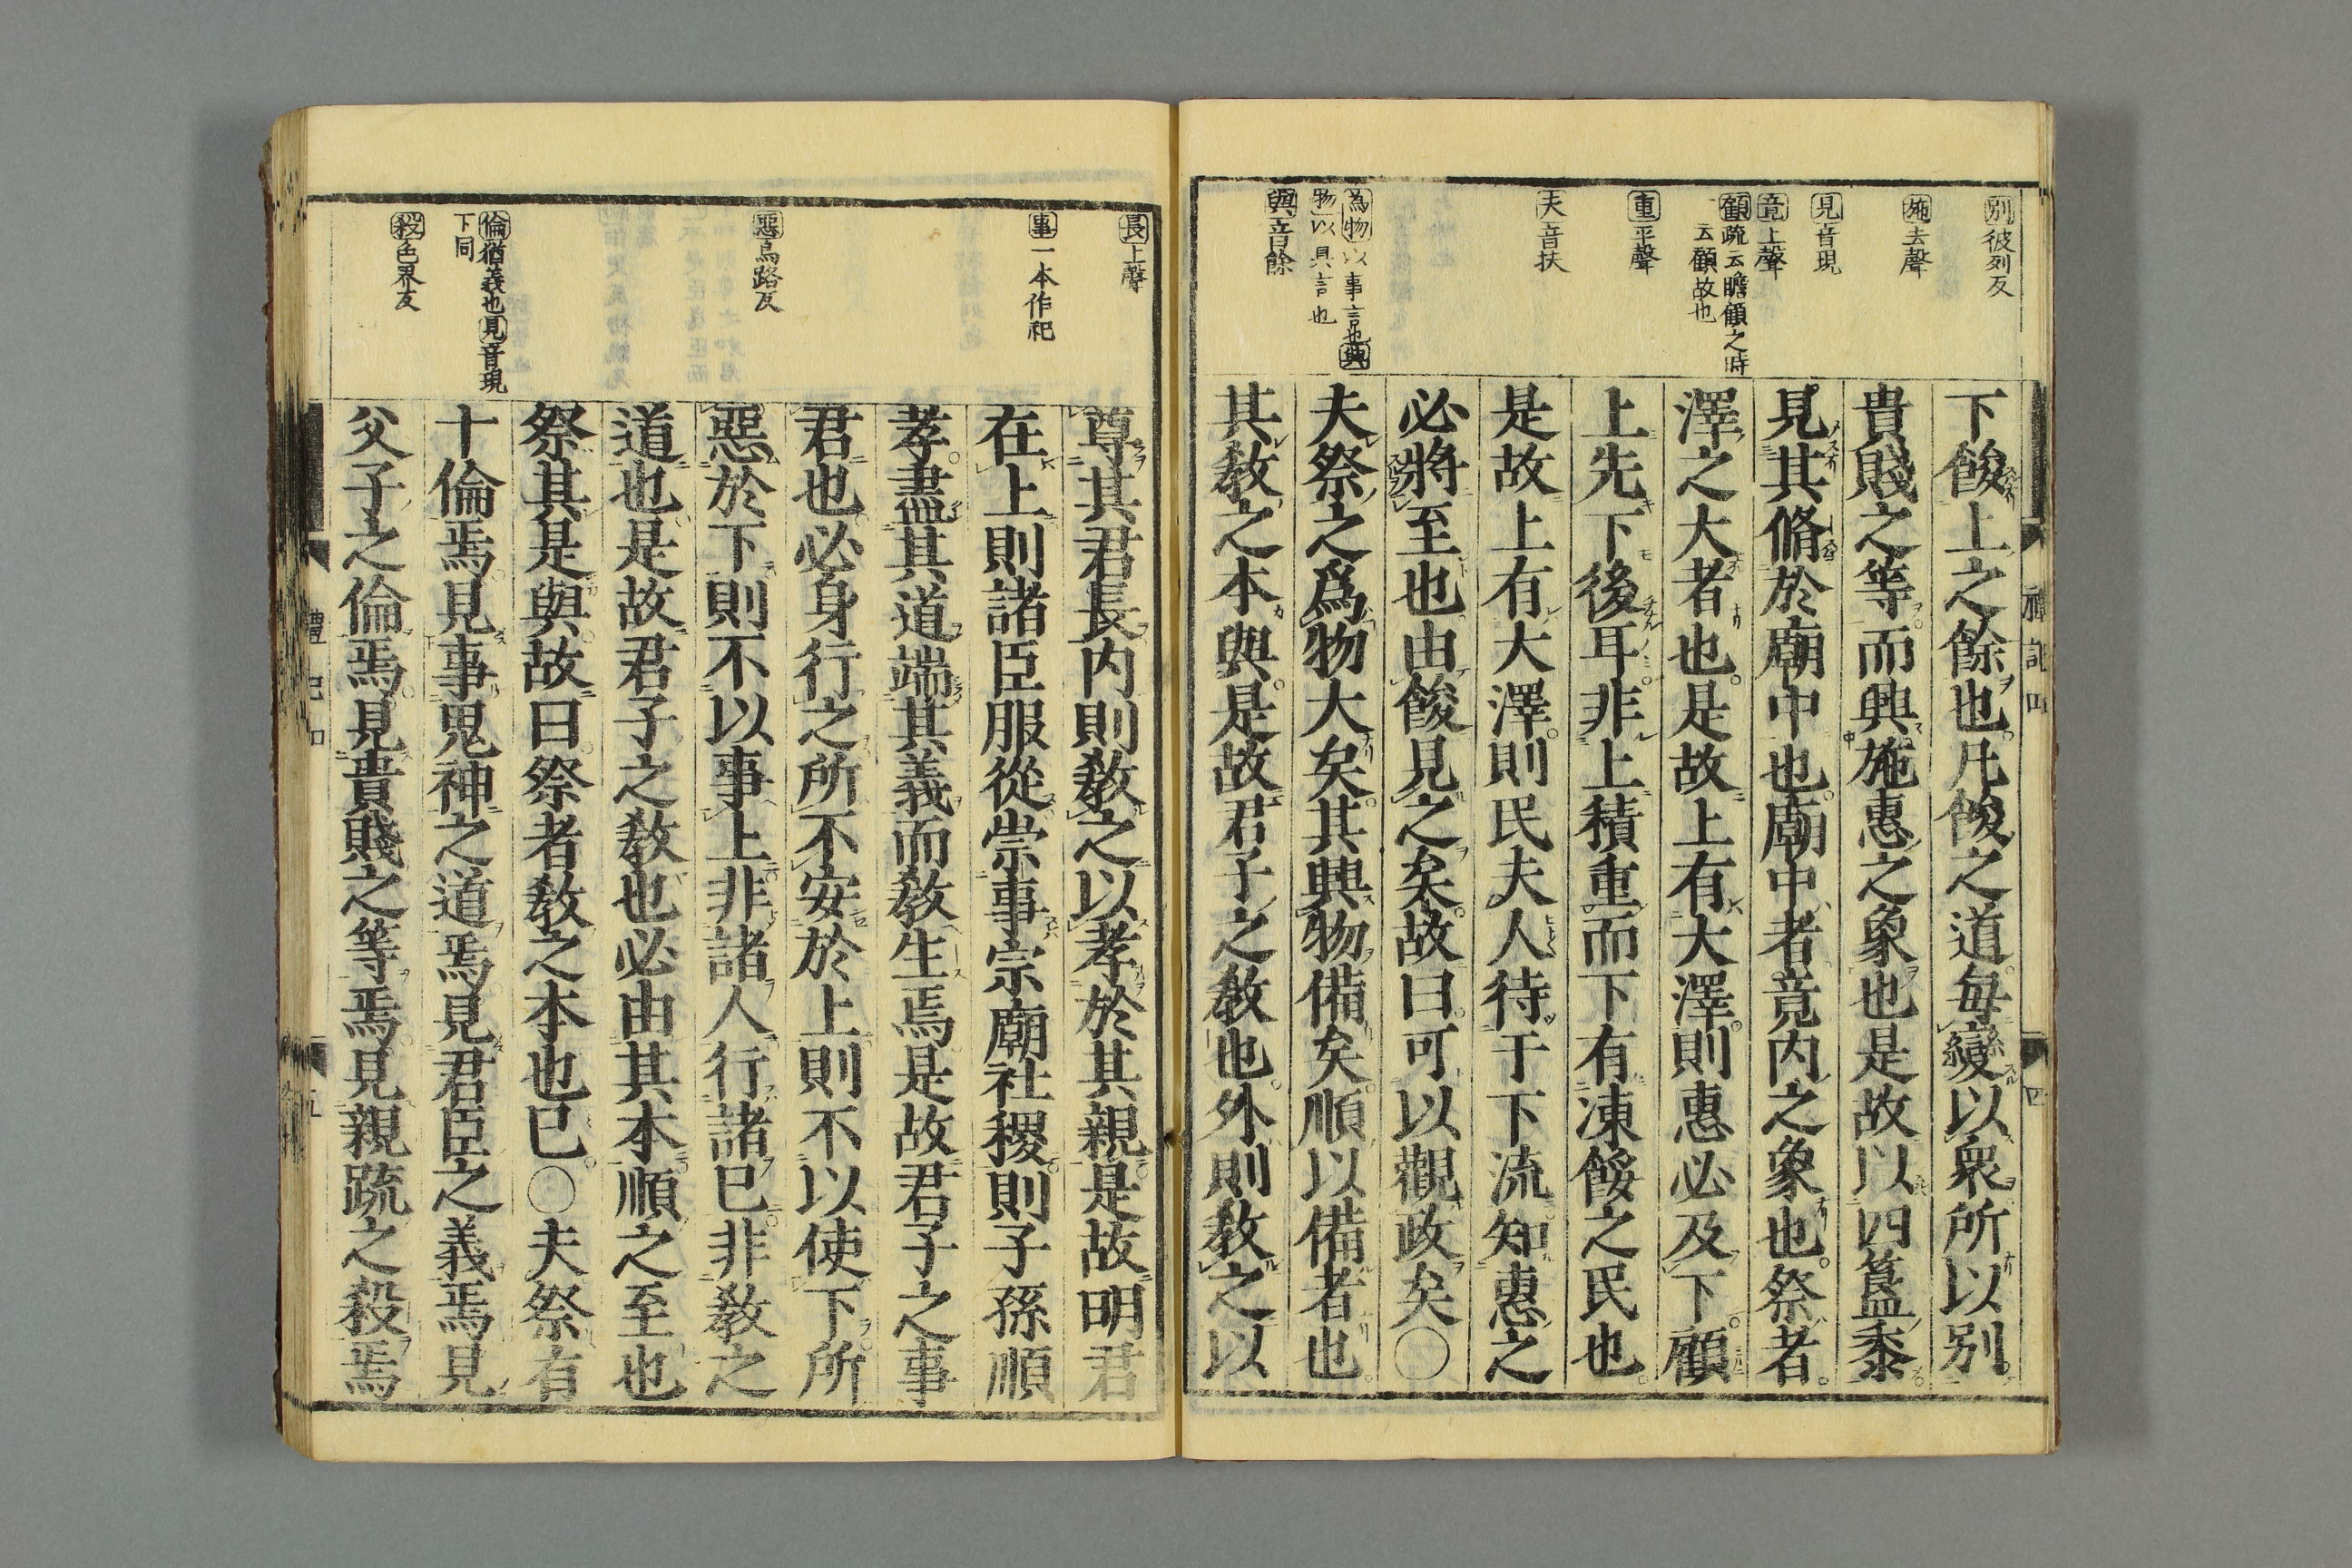 別彼列反
施去聲
見音現
竟上聲
顧疏云瞻顧之時
云顧故也
重平聲
夫音扶
為物以事言也興
物以具言也
與音餘
下餕上之餘也。凡餕之道。每變以衆。所以別
貴賤之等。而興施惠之象也是故以四簋黍。
見其脩於廟中也。廟中者。竟内之象也。祭者。
澤之大者也。是故上有大澤。則惠必及下。顧
上先下後耳。非上積重而下有凍餒之民也。
是故上有大澤。則民夫人待于下流。知惠之
必將至也由餕見之矣。故曰。可以觀政矣〇
夫祭之爲物大矣。其興物備矣。順以備者也。
其敎之本與。是故君子之敎也。外則敎之以
禮記四
四
長上聲
事一本作祀
惡烏路反
倫猶義也見音現
下同
殺色界反
尊其君長内則敎之以孝於其親。是故明君
在上則諸臣服從。崇事宗廟社稷。則子孫順
孝。盡其道端其義而敎生焉。是故君子之事
君也必身行之所不安於上則不以使下。所
惡於下則不以事上。非諸人行諸已。非敎之
道也是故君子之敎也必由其本順之至也
祭其是與。故曰。祭者敎之本也已。〇夫祭有
十倫焉。見事鬼神之道焉見君臣之義焉見
父子之倫焉。見貴賤之等焉。見親疏之殺焉
禮記四
五